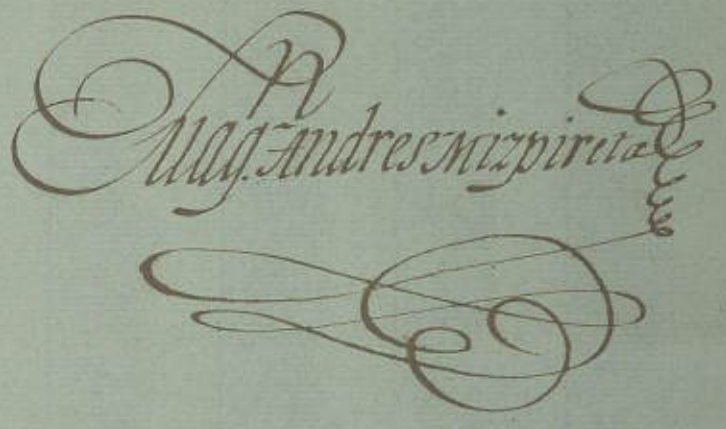 Mag. Andres Mizpireta